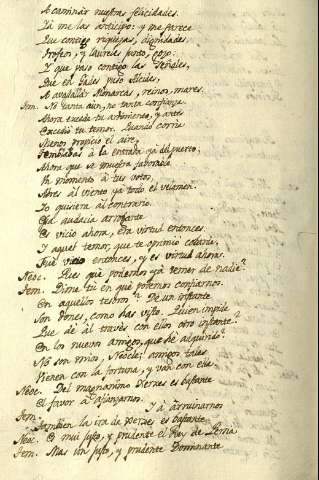 A caminar nuestras felicidades.
Yá me las anticipo: y me parece
Que contigo riquezas, dignidades,
Trofeos, y laureles junto, gozo.
Y que piso contigo las señales,
Que en Gades puso Alcides,
A avasallar Monarcas, reinos, mares.
Tem. No tanta aún, no tanta confianza.
Ahora excede tu ardimiento, y antes
Excedió tu temor. Quando corrió
Menos propicio el aire,
Temblabas à la entrada yá del puerto;
Ahora que se muestra favorable
Un momento à tus votos,
Abres al viento yá todo el velamen.
Yo quisiera al contrario.
Esa audacia arrogante
Es vicio ahora, era virtud entonces.
Y aquel temor, que te oprimió cobarde,
Fué vicio entonces, y es virtud ahora.
Neoc. Pues qué podemos yá temer de nadie?
Tem. Dime tú en qué podemos confiarnos.
En aquellos tesoros? De un instante
Son dones, como has visto. Quien impide
Que dé al través con ellos otro instante?
En los nuevos amigos, que hé adquirido?
No son mios, Neocle; amigos tales
Vienen con la fortuna, y van con ella.
Neoc. Del magnanimo Xerxes es bastante
El favor à afianzarnos.
Tem. I à arruinarnos
Tambien la ira de Xerxes es bastante.
Neoc. Es mui justo, y prudente el Rey de Persia
Tem. Mas un justo, y prudente Dominante